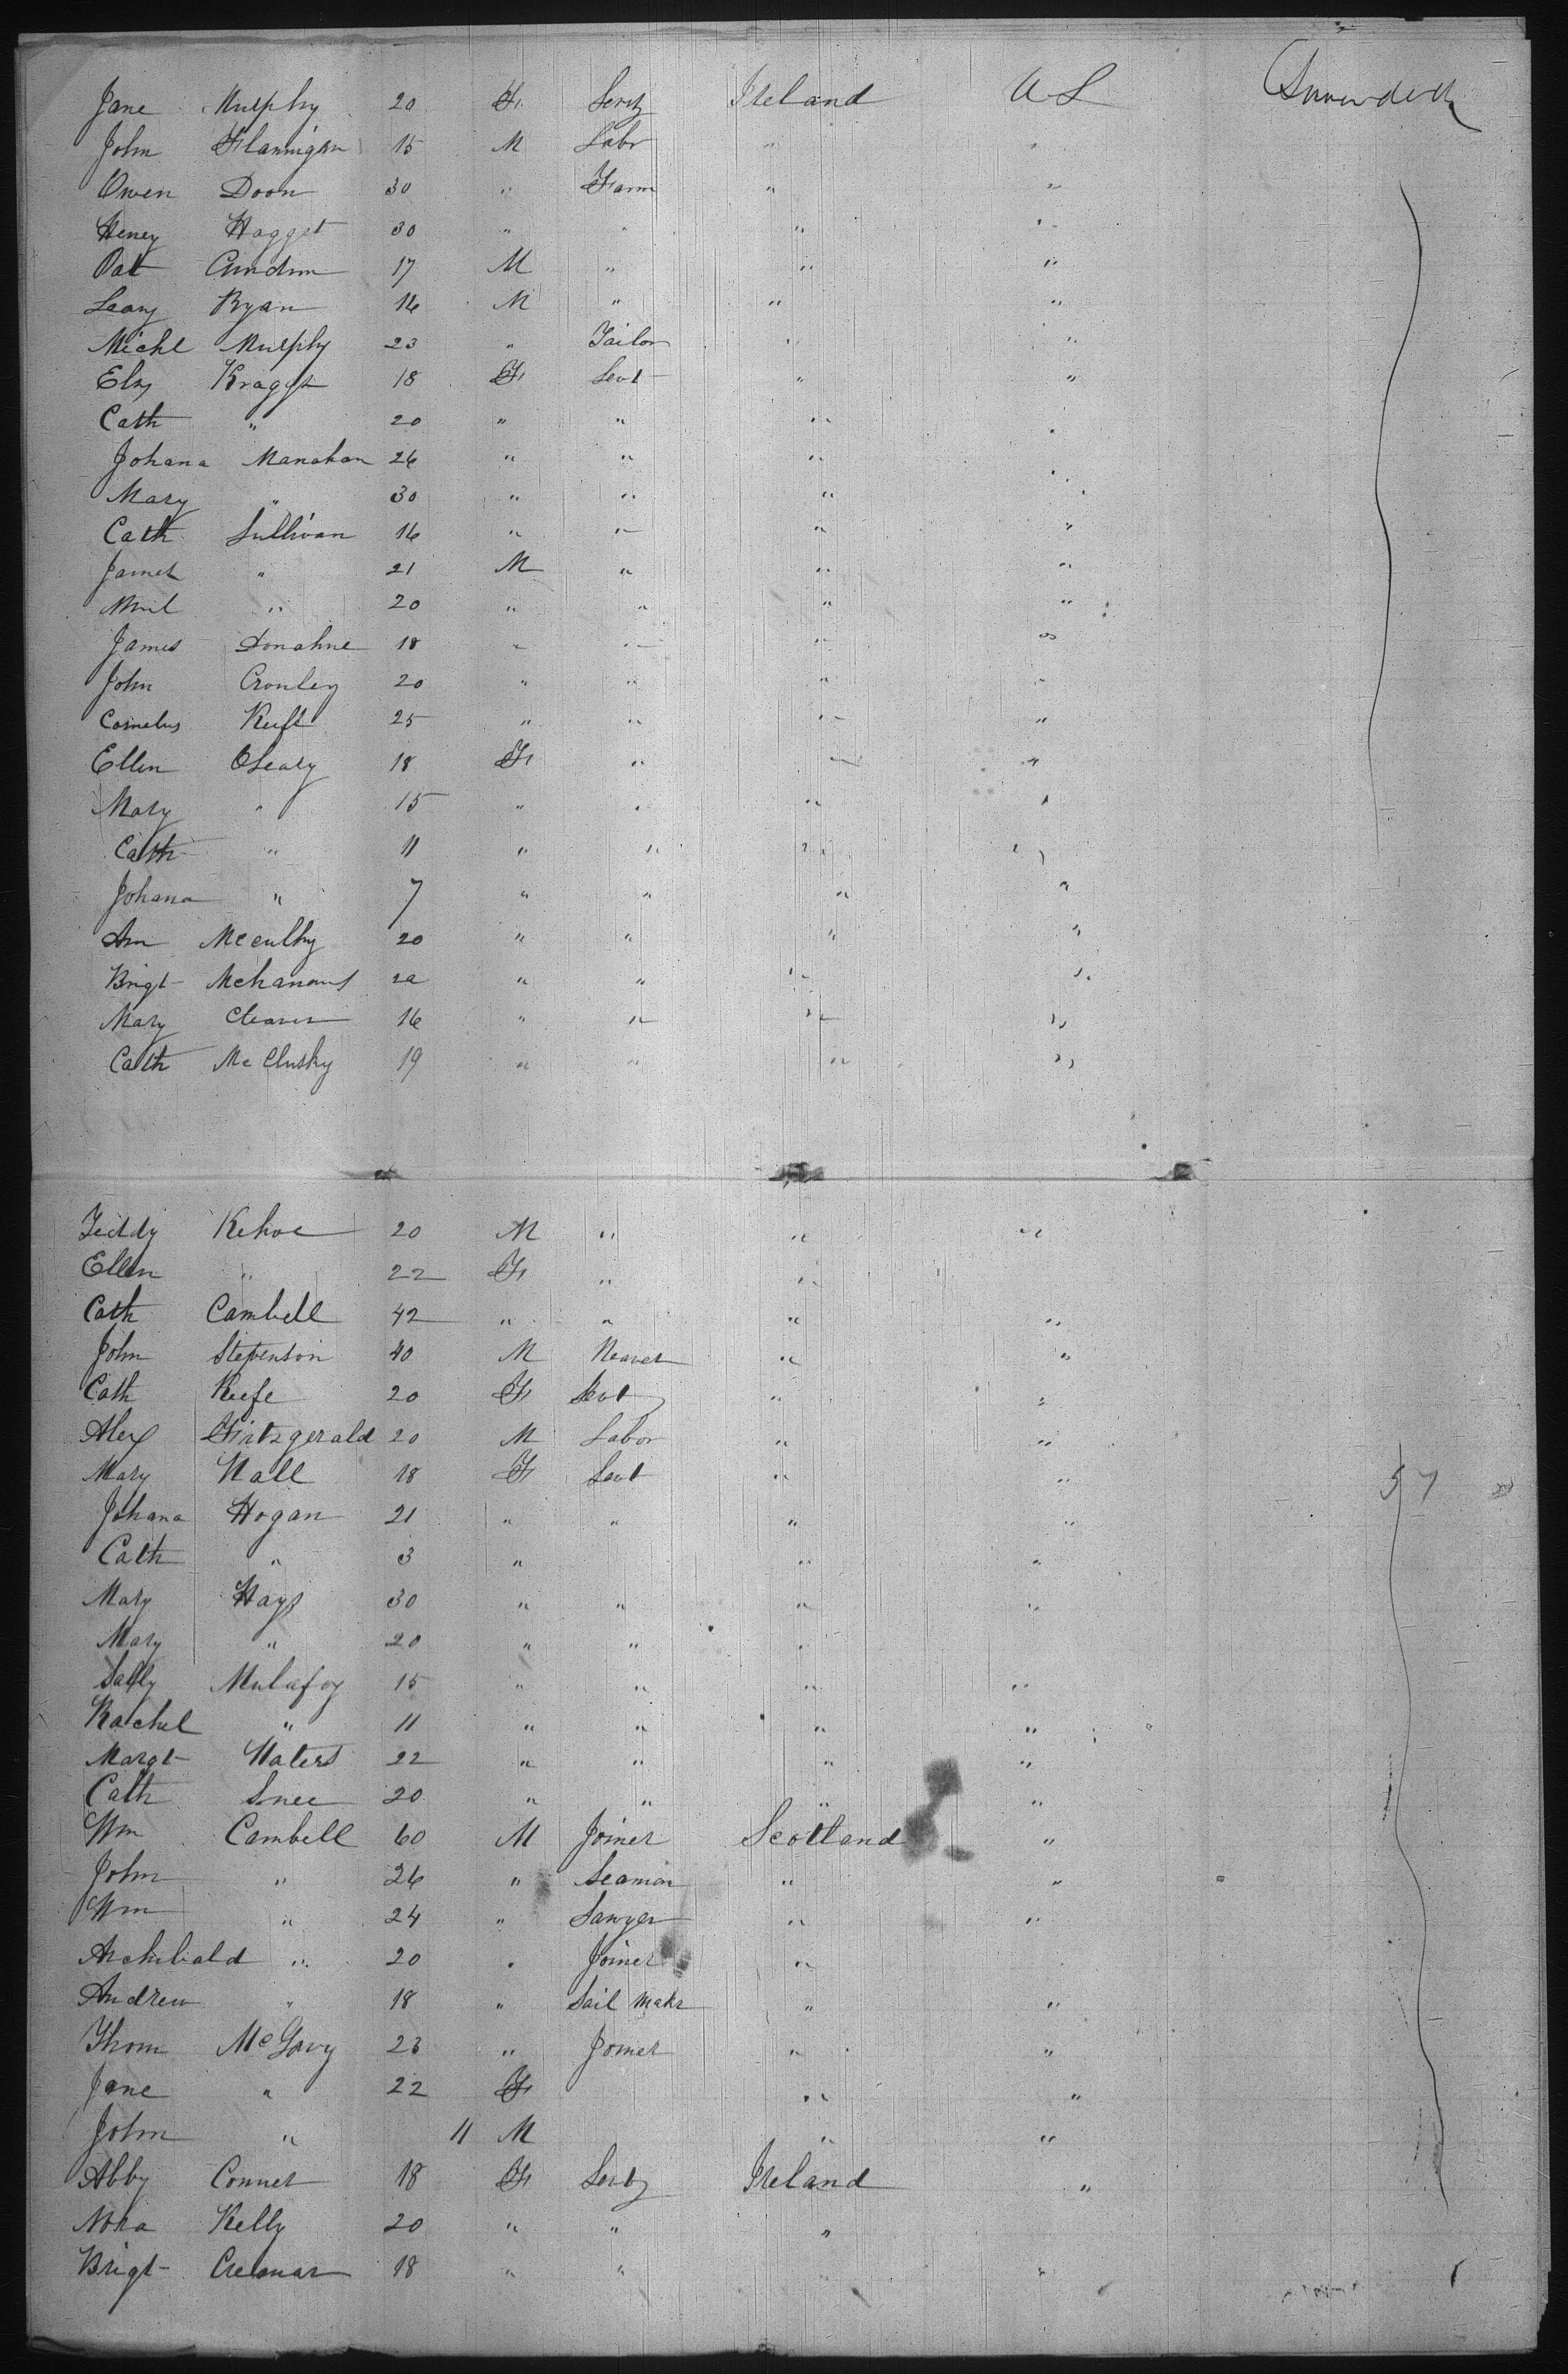 Jane Murphy 20 F Servt Ireland U S
John Flannigan 15 M Labr " "
Owen Doon 30 " Farm " "
Heney Hagget 30 " " " "
Pat 17 M " " "
Leary Ryan 16 M " " "
Michl Murphy 23 " Tailor " "
Elz 18 F Sevt " "
Cath " 20 " " " "
Johana Manahan 26 " " " "
Mary " 30 " " " "
Cath Sullivan 16 " " " "
James " 21 M " " "
" 20 " " " "
James Donahue 18 " " " "
John Cronley 20 " " " "
Cornelus 25 " " " "
Ellen OLeary 18 F " " "
Mary " 15 " " " "
Cath " 11 " " " "
Johana " 7 " " " "
Ann 20 " " " "
Brigt " " " "
Mary 16 " " " "
Cath McClusky 19 " " " "
Teddy Kehoe 20 M " " "
Ellen " 22 F " "
Cath Cambell 42 " " " "
John Stevenson 40 M Weaver " "
Cath Keefe 20 F Sevt " "
Alex Fitzgerald 20 M Labor " "
Mary Hall 18 F Sevt " " 57
Johana Hogan 21 " " " "
Cath " 3 " " "
Mary Hays 30 " " " "
Mary " 20 " " "
Sally 15 " " " "
Rachel " 11 " " " "
Margt Waters 22 " " " "
Cath Snee 20 " " " "
Wm Cambell 60 M Joiner Scotland "
John " 26 " Seaman " "
Wm " 24 " Sawyer " "
Archibald " 20 " Joiner "
Andrew " 18 " Sail Makr " "
Thom 23 " Joiner " "
Jane " 22 F " "
John " 11 M " "
Abby Conner 18 F Servt Ireland "
Nora Kelly 20 " " "
Brigt 18 " " "